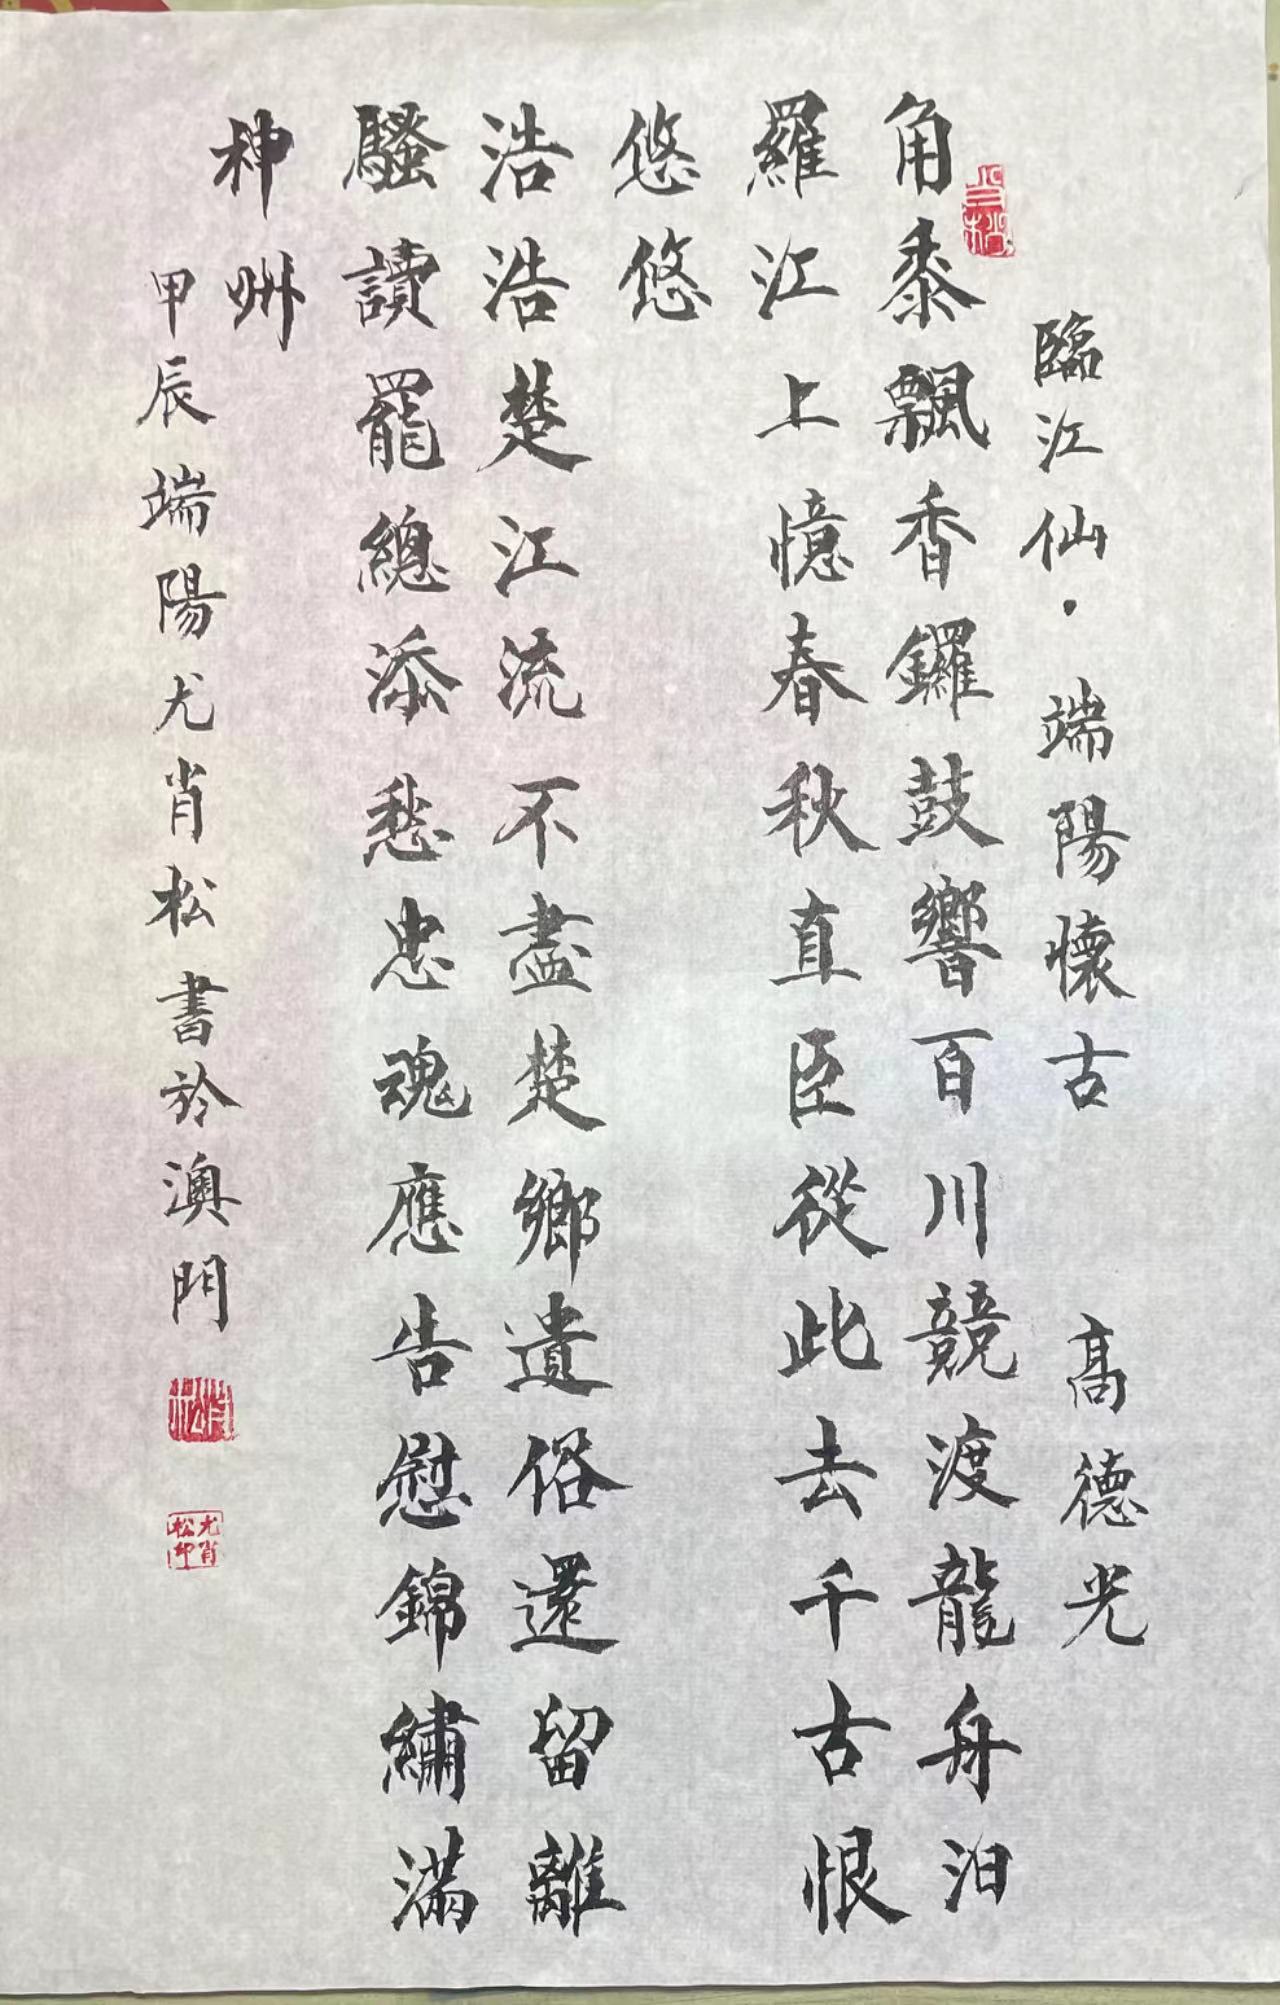 臨江仙·端陽懷古 髙德光
角黍飄香鑼鼓響百川競渡龍舟汨
羅江上憶春秋直臣從此去千古恨
悠悠
浩浩楚江流不盡楚鄉遺俗還留離
騷讀罷總添愁忠魂應告慰錦繡滿
神州
甲辰端陽尤肖松書於澳門
尤肖松印